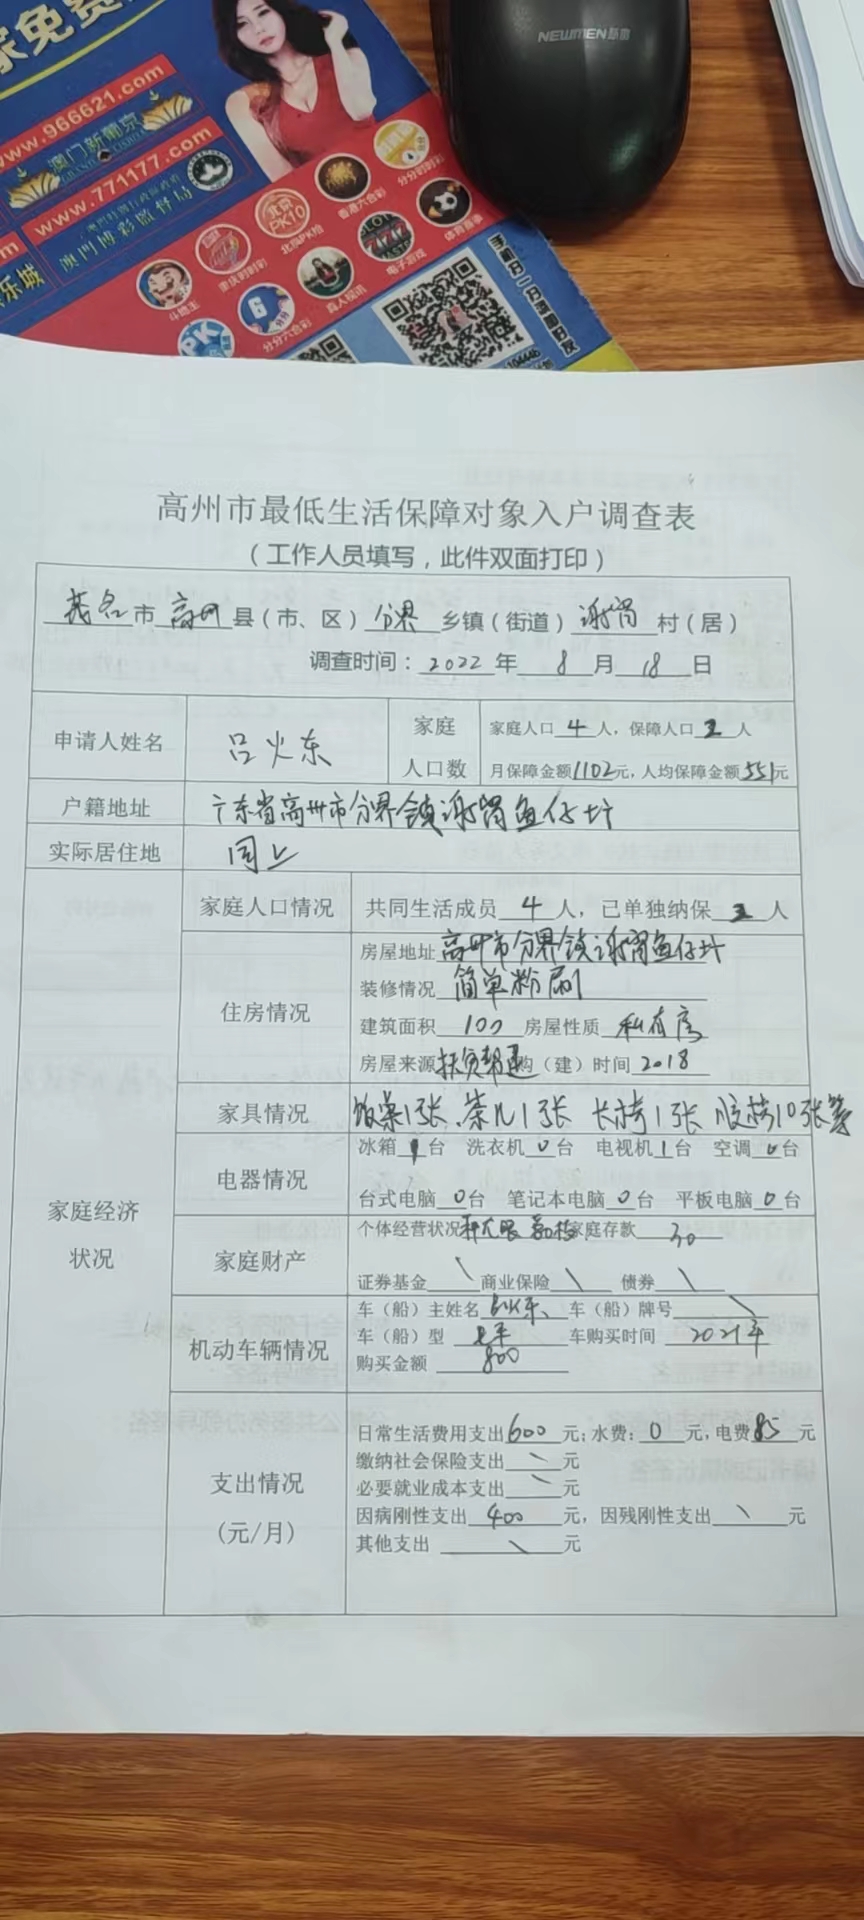 家免费
NEWMEN 新贵
www.966621.com
澳门新葡京
www.771177.com
澳門博彩監督局
乐城
斗地主
重庆时时彩
北京PK10
北京PK拾
香港六合彩
分分时时彩
分分六合彩
真人视讯
电子游戏
体育赛事
高州市最低生活保障对象入户调查表
（工作人员填写，此件双面打印）
茂名市 高州县（市、区）分界乡镇（街道）谢岗村（居）
调查时间：2022年 8月18日
申请人姓名 吕火东 家庭人口数 家庭人口 4 人，保障人口 2 人
月保障金额1102元，人均保障金额551元
户籍地址 广东省高州市分界镇谢岗鱼仔圩
实际居住地 同上
家庭经济状况
家庭人口情况 共同生活成员 4 人，已单独纳保 2 人
住房情况 房屋地址 高州市分界镇谢岗鱼仔圩
装修情况 简单粉刷
建筑面积 100 房屋性质 私有房
房屋来源 扶贫帮建 购（建）时间 2018
家具情况 饭桌1张、茶几1张 长椅1张 胶椅10张等
电器情况 冰箱 1 台 洗衣机 0 台 电视机 1 台 空调 0 台
台式电脑 0 台 笔记本电脑 0 台 平板电脑 0 台
家庭财产 个体经营状况 种龙眼 荔枝 家庭存款 30
证券基金 \ 商业保险 \ 债券 \
机动车辆情况 车（船）主姓名 吕火东 车（船）牌号 \
车（船）型 车购买时间 2021年
购买金额 800
支出情况
(元/月)
日常生活费用支出600元；水费：0元，电费85元
缴纳社会保险支出 \ 元
必要就业成本支出 \ 元
因病刚性支出 400 元，因残刚性支出 \ 元
其他支出 \ 元